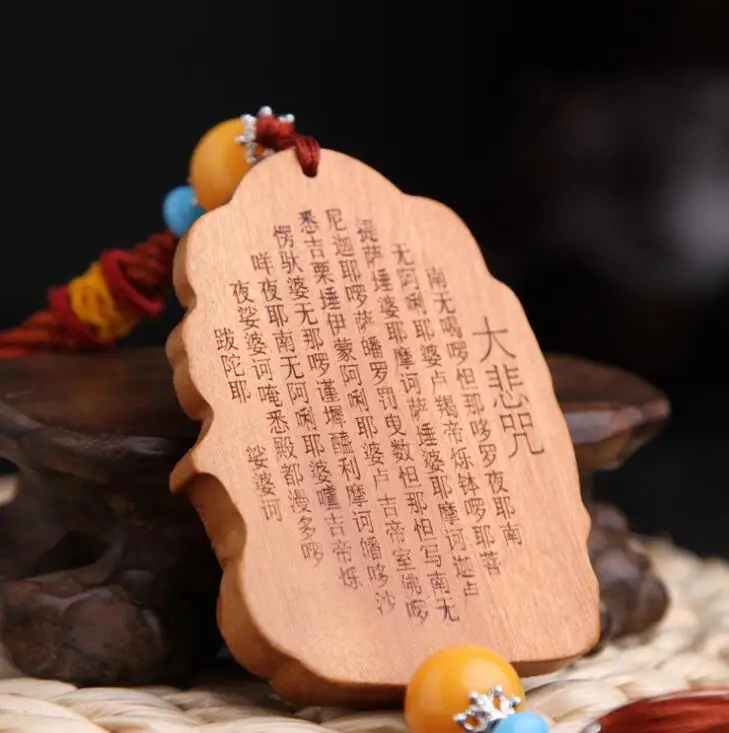 大悲咒
南无喝啰怛那哆罗夜耶南
无阿唎耶婆卢羯帝烁钵啰耶菩
提萨埵婆耶摩诃萨埵婆耶摩诃迦卢
尼迦耶唵萨皤罗罚曳数怛那怛写南无
悉吉栗埵伊蒙阿唎耶婆卢吉帝室佛啰
愣驮婆无那啰谨墀醯利摩诃皤哆沙
咩夜耶南无阿唎耶婆嚧吉帝烁
夜娑婆诃唵悉殿都漫多啰
跋陀耶 娑婆诃